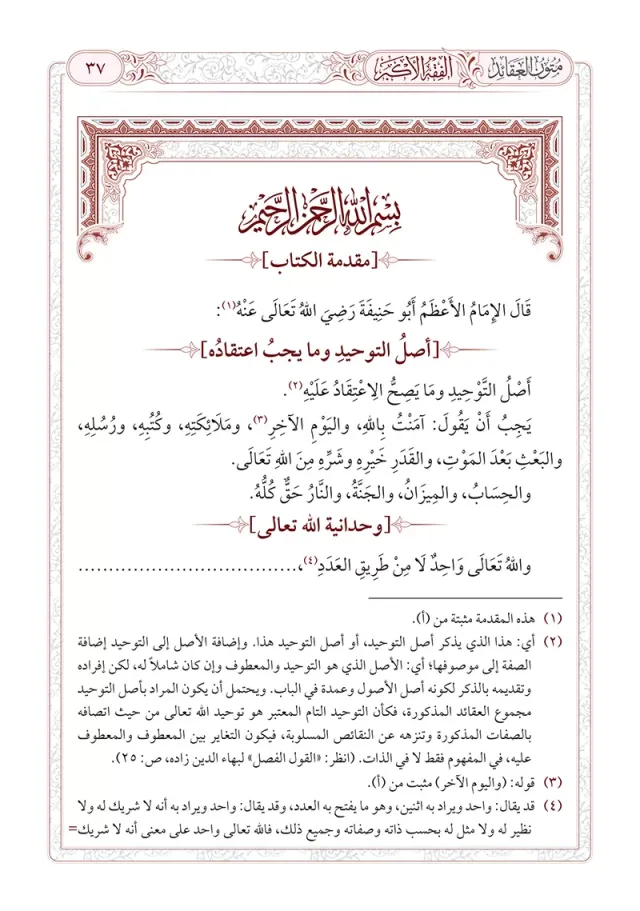 متون العقائد
الفقه الأكبر
٣٧
بسم الله الرحمن الرحيم
[مقدمة الكتاب]
قَالَ الإِمَامُ الأَعْظَمُ أَبُو حَنِيفَةَ رَضِيَ اللهُ تَعَالَى عَنْهُ(١):
[أصلُ التوحيدِ وما يجبُ اعتقادُه]
أَصْلُ التَّوْحِيدِ ومَا يَصِحُّ الِاعْتِقَادُ عَلَيْهِ(٢).
يَجِبُ أَنْ يَقُولَ: آمَنْتُ بِاللهِ، واليَوْمِ الآخِرِ(٣)، ومَلَائِكَتِهِ، وكُتُبِهِ، ورُسُلِهِ،
والبَعْثِ بَعْدَ المَوْتِ، والقَدَرِ خَيْرِهِ وشَرِّهِ مِنَ اللهِ تَعَالَى.
والحِسَابُ، والمِيزَانُ، والجَنَّةُ، والنَّارُ حَقٌّ كُلُّهُ.
[وحدانية الله تعالى]
واللهُ تَعَالَى وَاحِدٌ لَا مِنْ طَرِيقِ العَدَدِ(٤)، ....................................
(١) هذه المقدمة مثبتة من (أ).
(٢) أي: هذا الذي يذكر أصل التوحيد، أو أصل التوحيد هذا. وإضافة الأصل إلى التوحيد إضافة
الصفة إلى موصوفها؛ أي: الأصل الذي هو التوحيد والمعطوف وإن كان شاملاً له، لكن إفراده
وتقديمه بالذكر لكونه أصل الأصول وعمدة في الباب. ويحتمل أن يكون المراد بأصل التوحيد
مجموع العقائد المذكورة، فكأن التوحيد التام المعتبر هو توحيد الله تعالى من حيث اتصافه
بالصفات المذكورة وتنزهه عن النقائص المسلوبة، فيكون التغاير بين المعطوف والمعطوف
عليه، في المفهوم فقط لا في الذات. (انظر: «القول الفصل» لبهاء الدين زاده، ص: ٢٥).
(٣) قوله: (واليوم الآخر) مثبت من (أ).
(٤) قد يقال: واحد ويراد به اثنين، وهو ما يفتح به العدد، وقد يقال: واحد ويراد به أنه لا شريك له ولا
نظير له ولا مثل له بحسب ذاته وصفاته وجميع ذلك، فالله تعالى واحد على معنى أنه لا شريك=